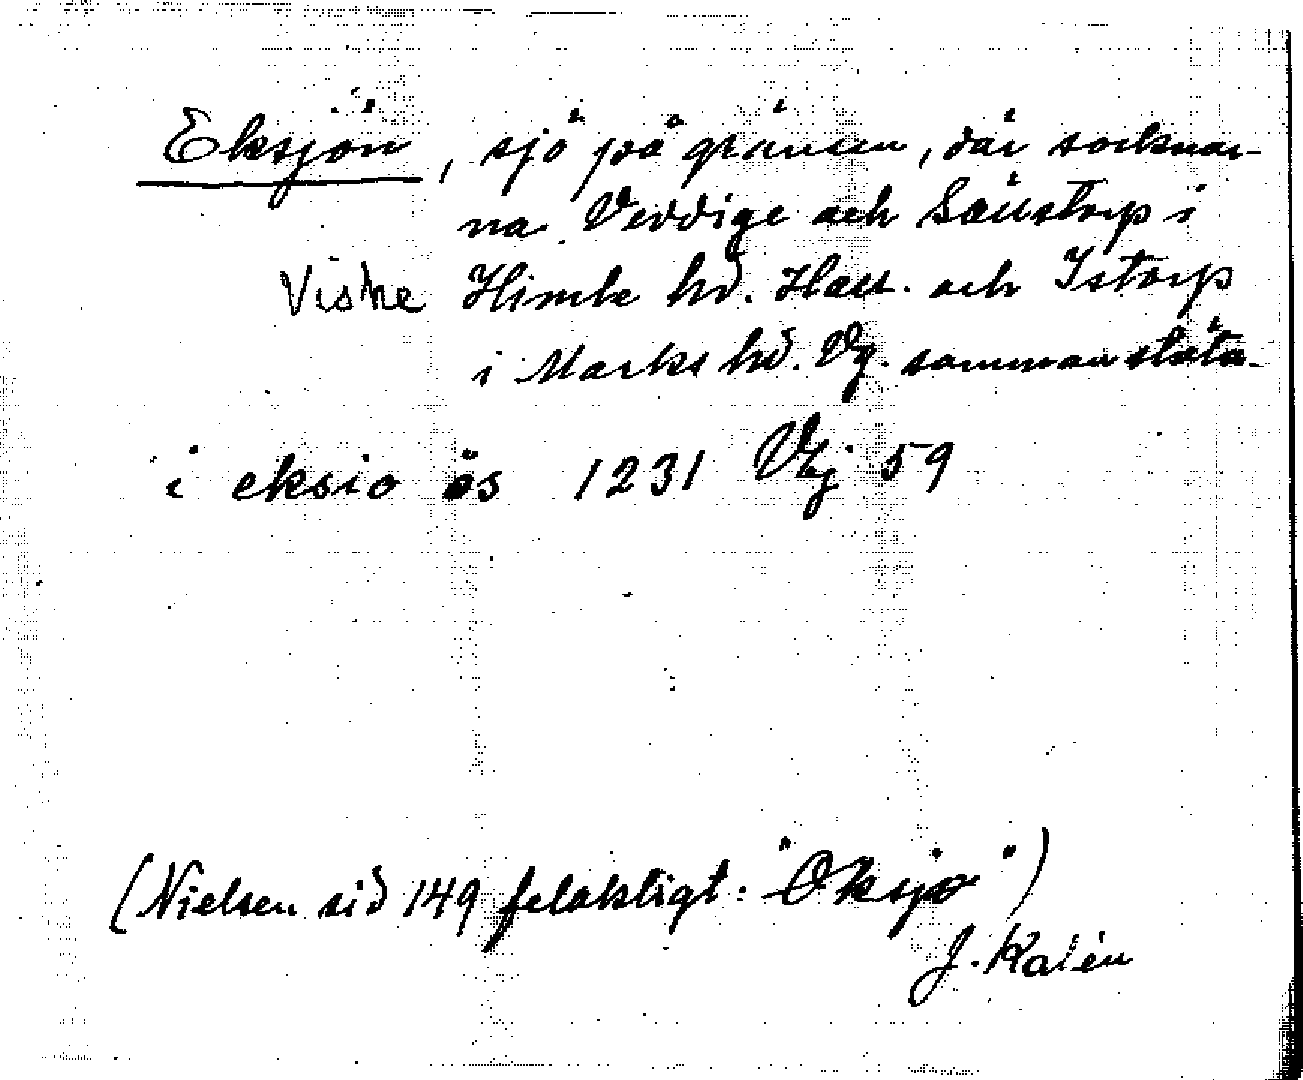 Eksjön, sjö på gränsen, där socknar-
na Veddige och Sällstorp i
Viske Himle hd. Hall. och Istorp
i Marks hd. Vg. sammanstöta.
i eksio ös 1231 Vkj 59
(Nielsen sid 149 felaktigt: "Oksjø")
J. Kalén